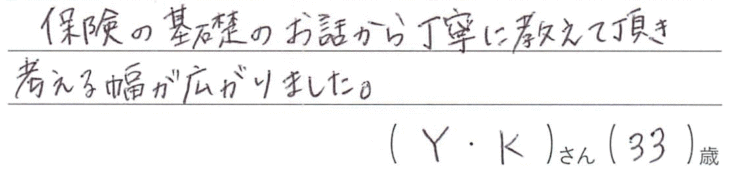 保険の基礎のお話から丁寧に教えて頂き
考える幅が広がりました。
(Y・K)さん(33)歳